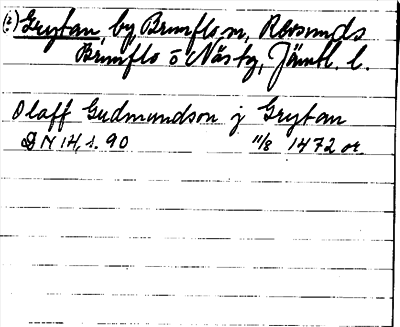 (i) Grytan, by Brunflo sn, Revsunds
Brunflo o Näs tg, Jämtl. l.
Olaff Gudmundson j Grytan
DN 14, s. 90 11/8 1472 or.